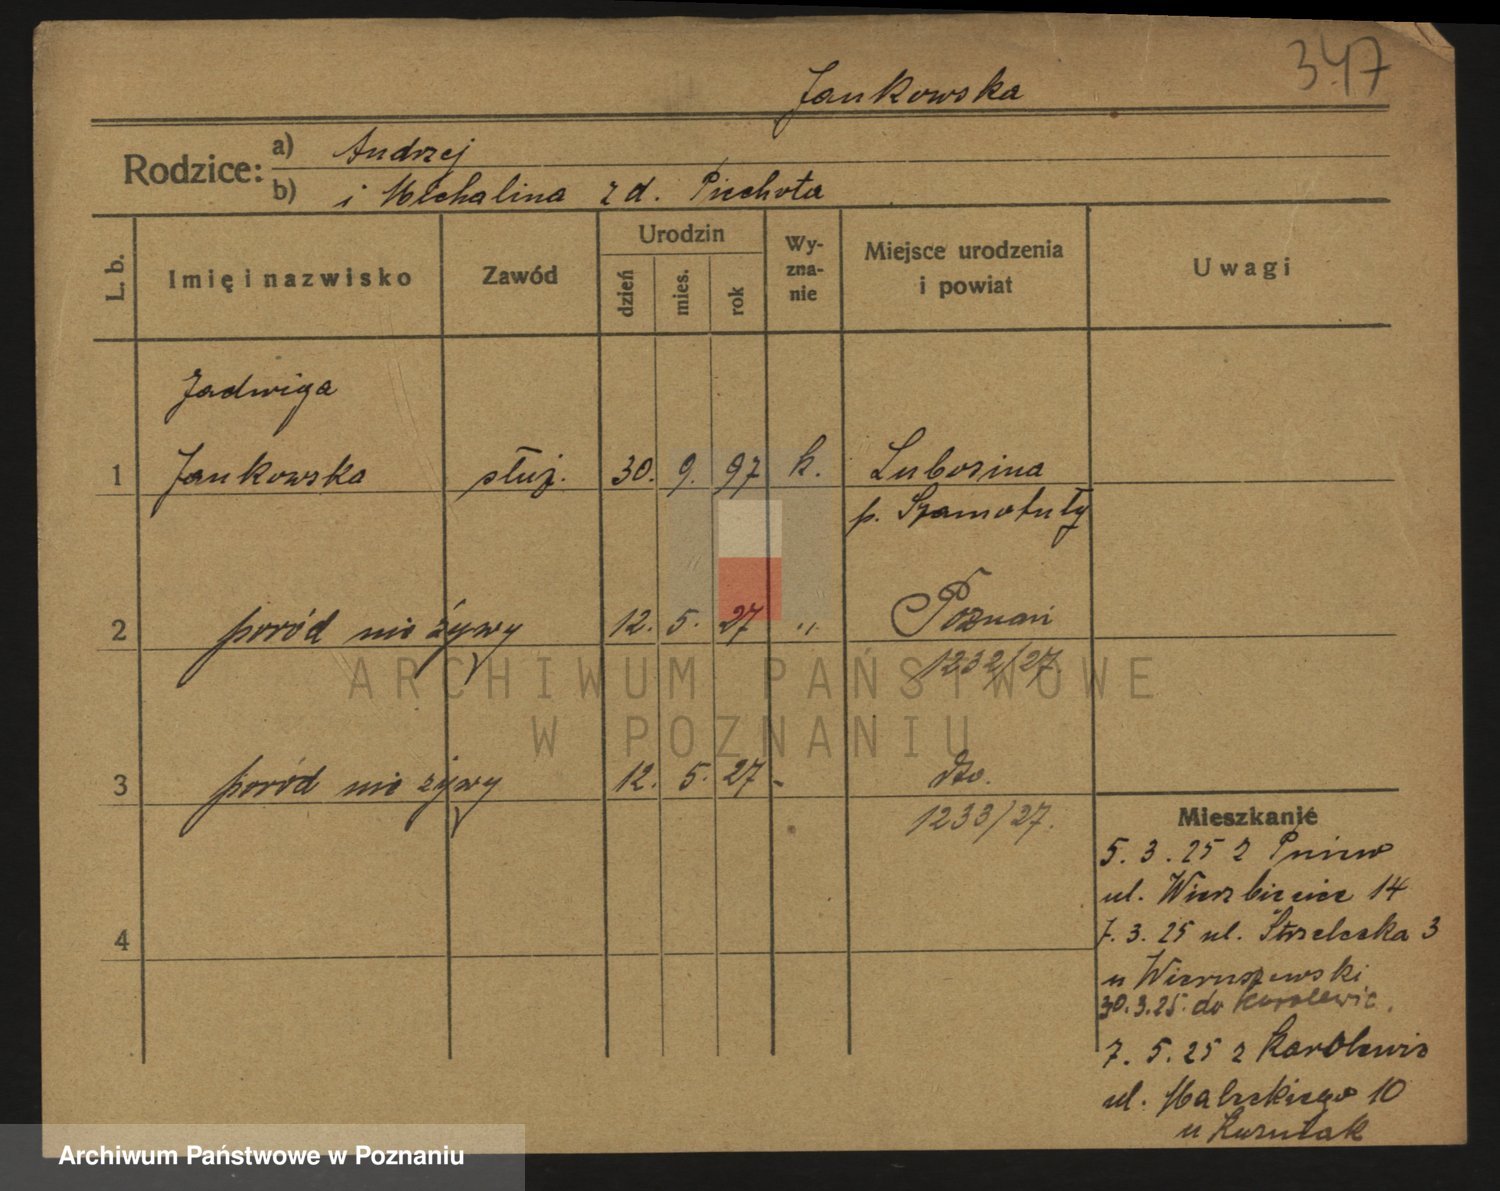 347
Jankowska
Rodzice:
a) Andrzej
b) i Michalina z d. Piechota
L. b.
Imię i nazwisko
Zawód
Urodzin
dzień
mies.
rok
Wy-
zna-
nie
Miejsce urodzenia
i powiat
Uwagi
Jadwiga
1 Jankowska służ. 30. 9. 97 k. Lubosina
p. Szamotuły
2 poród nie żywy 12. 5. 27 " Poznań
1232/27
3 poród nie żywy 12. 5. 27 - dto.
1233/27.
4
Mieszkanie
5. 3. 25 z Pniew
ul. Wierzbięcice 14
7. 3. 25 ul. Strzelecka 3
u Wieruszewski
30.3.25. do Karolewic.
7. 5. 25 z Karolewic
ul. Małeckiego 10
u
ARCHIWUM PAŃSTWOWE
W POZNANIU
Archiwum Państwowe w Poznaniu